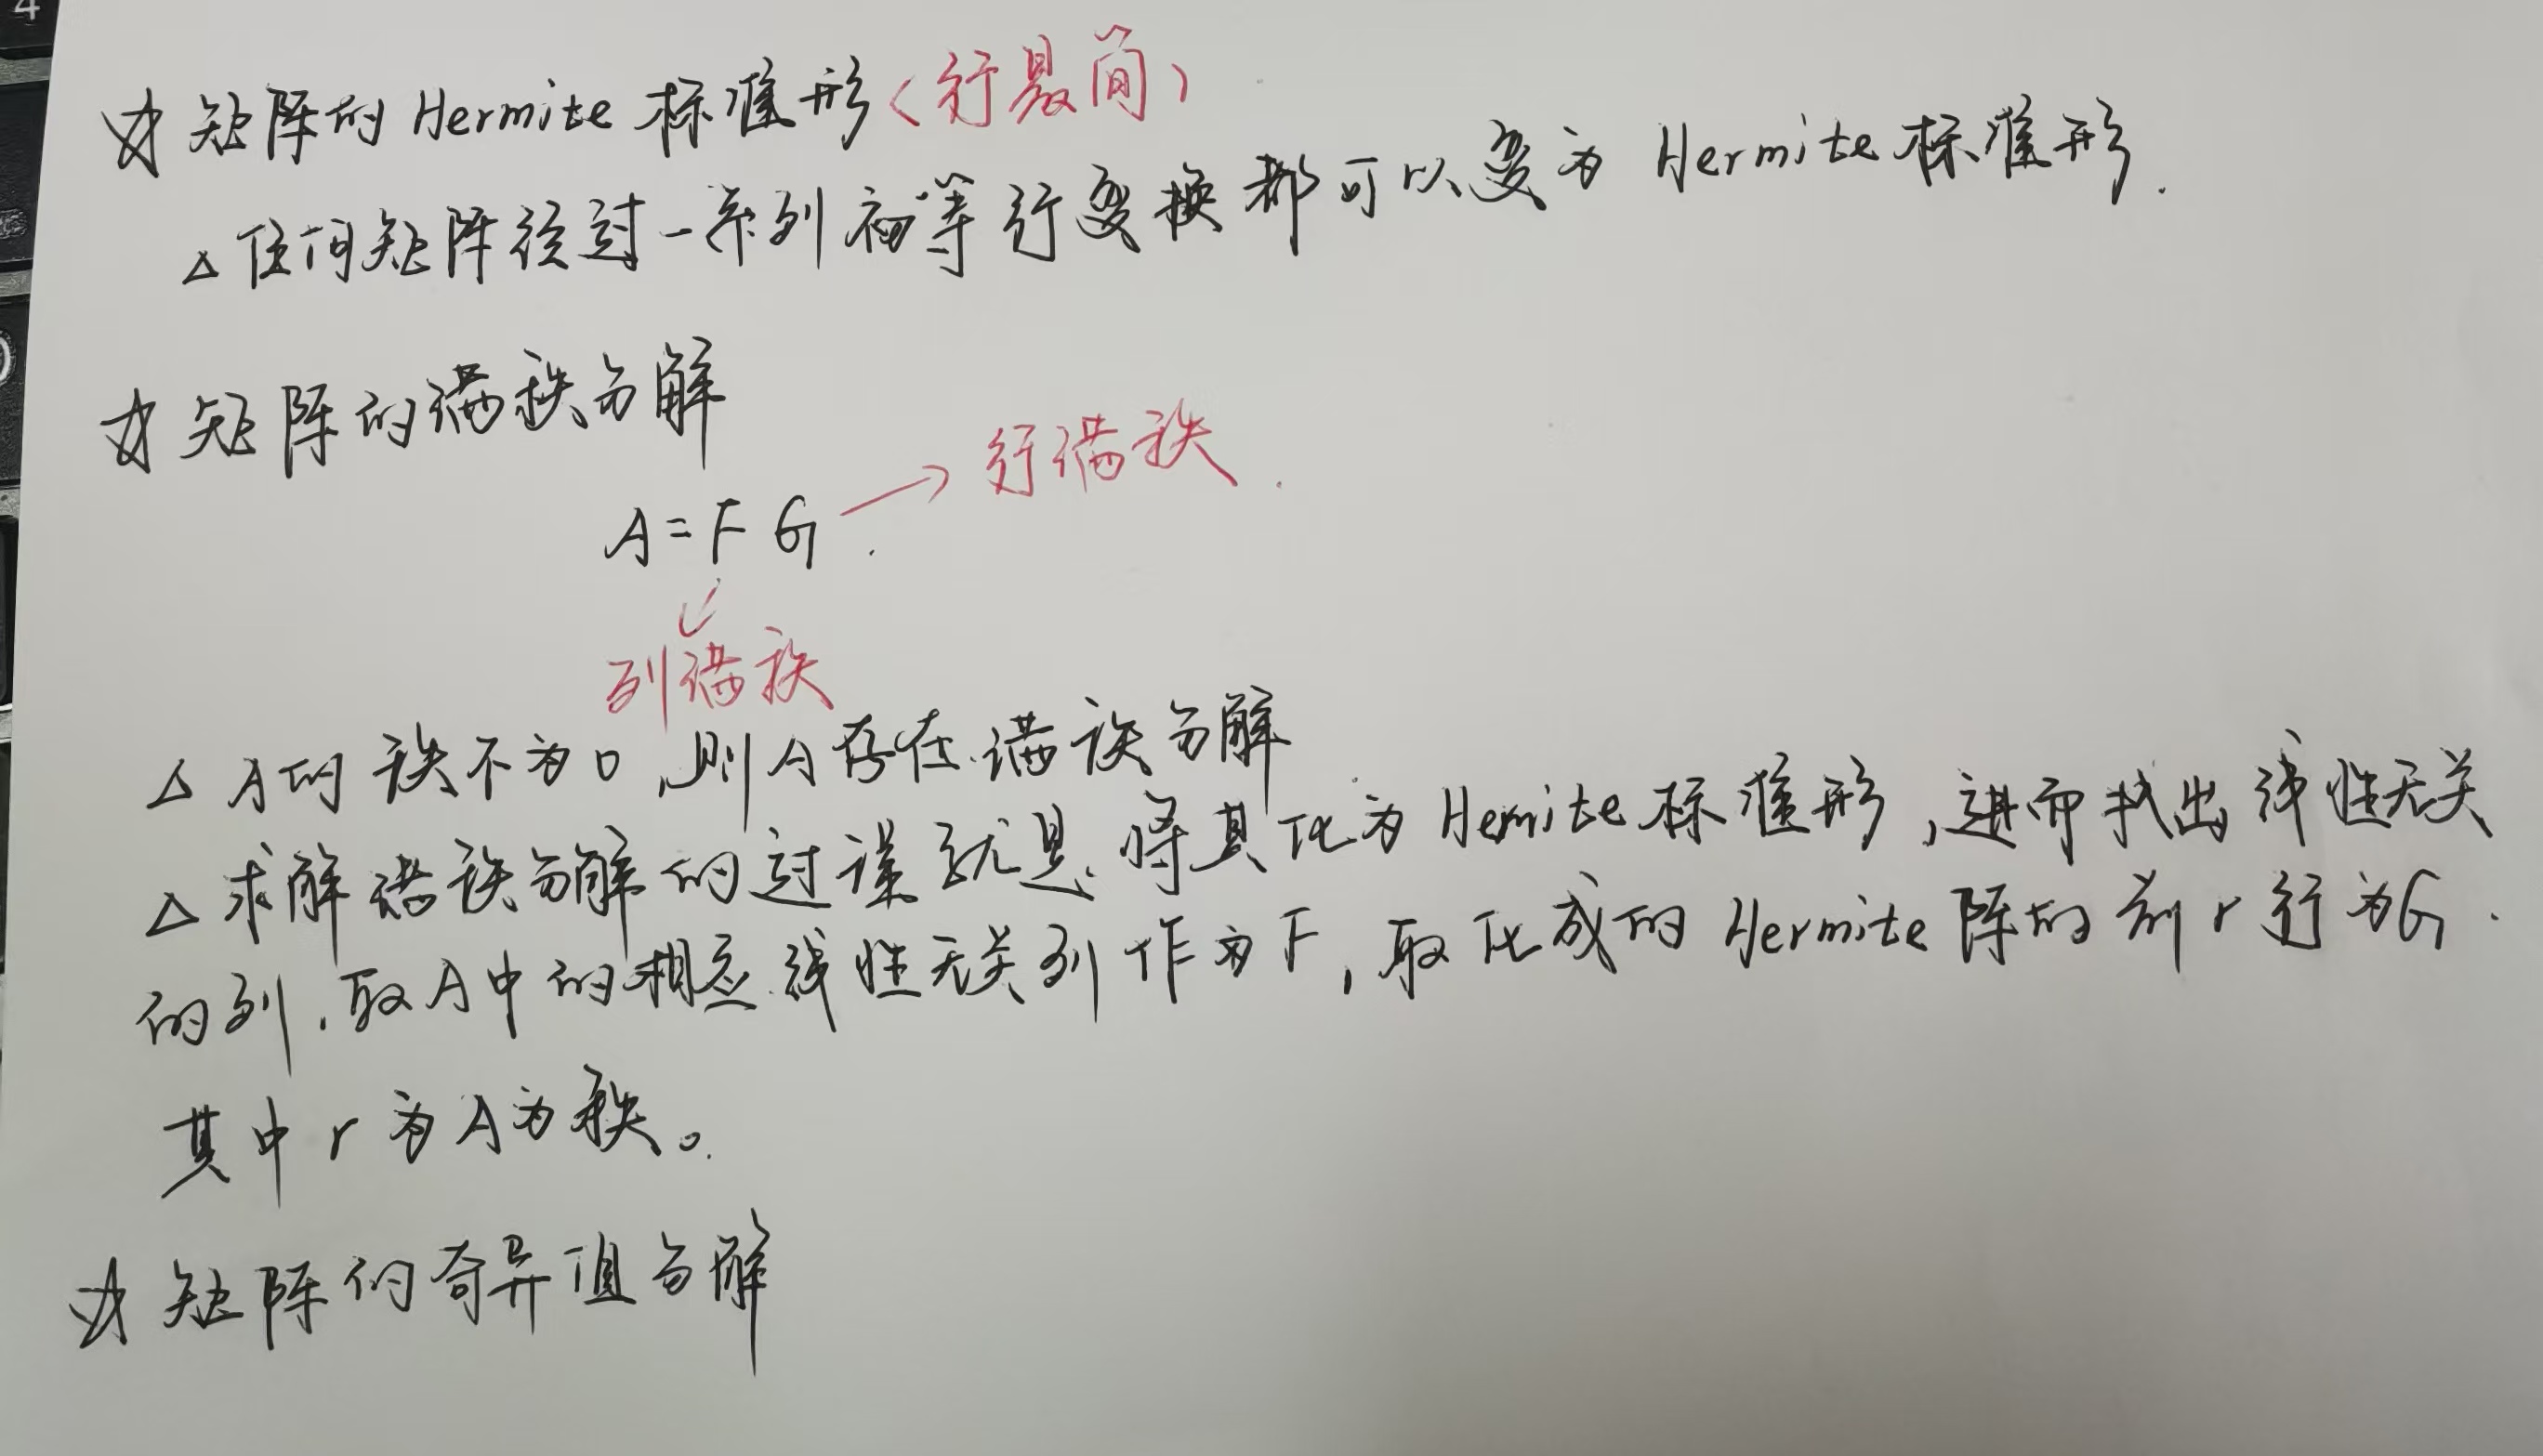 4
☆ 矩阵的 Hermite 标准形（行最简）
△ 任何矩阵经过一系列初等行变换都可以变为 Hermite 标准形.
☆ 矩阵的满秩分解
A = F G → 行满秩.
列满秩
△ A的秩不为0,则A存在满秩分解
△ 求解满秩分解的过程就是将其化为 Hemite 标准形,进而找出线性无关
的列.取A中的相应线性无关列作为F,取化成的 Hermite 阵的前r行为G.
其中r为A为秩。
☆ 矩阵的奇异值分解